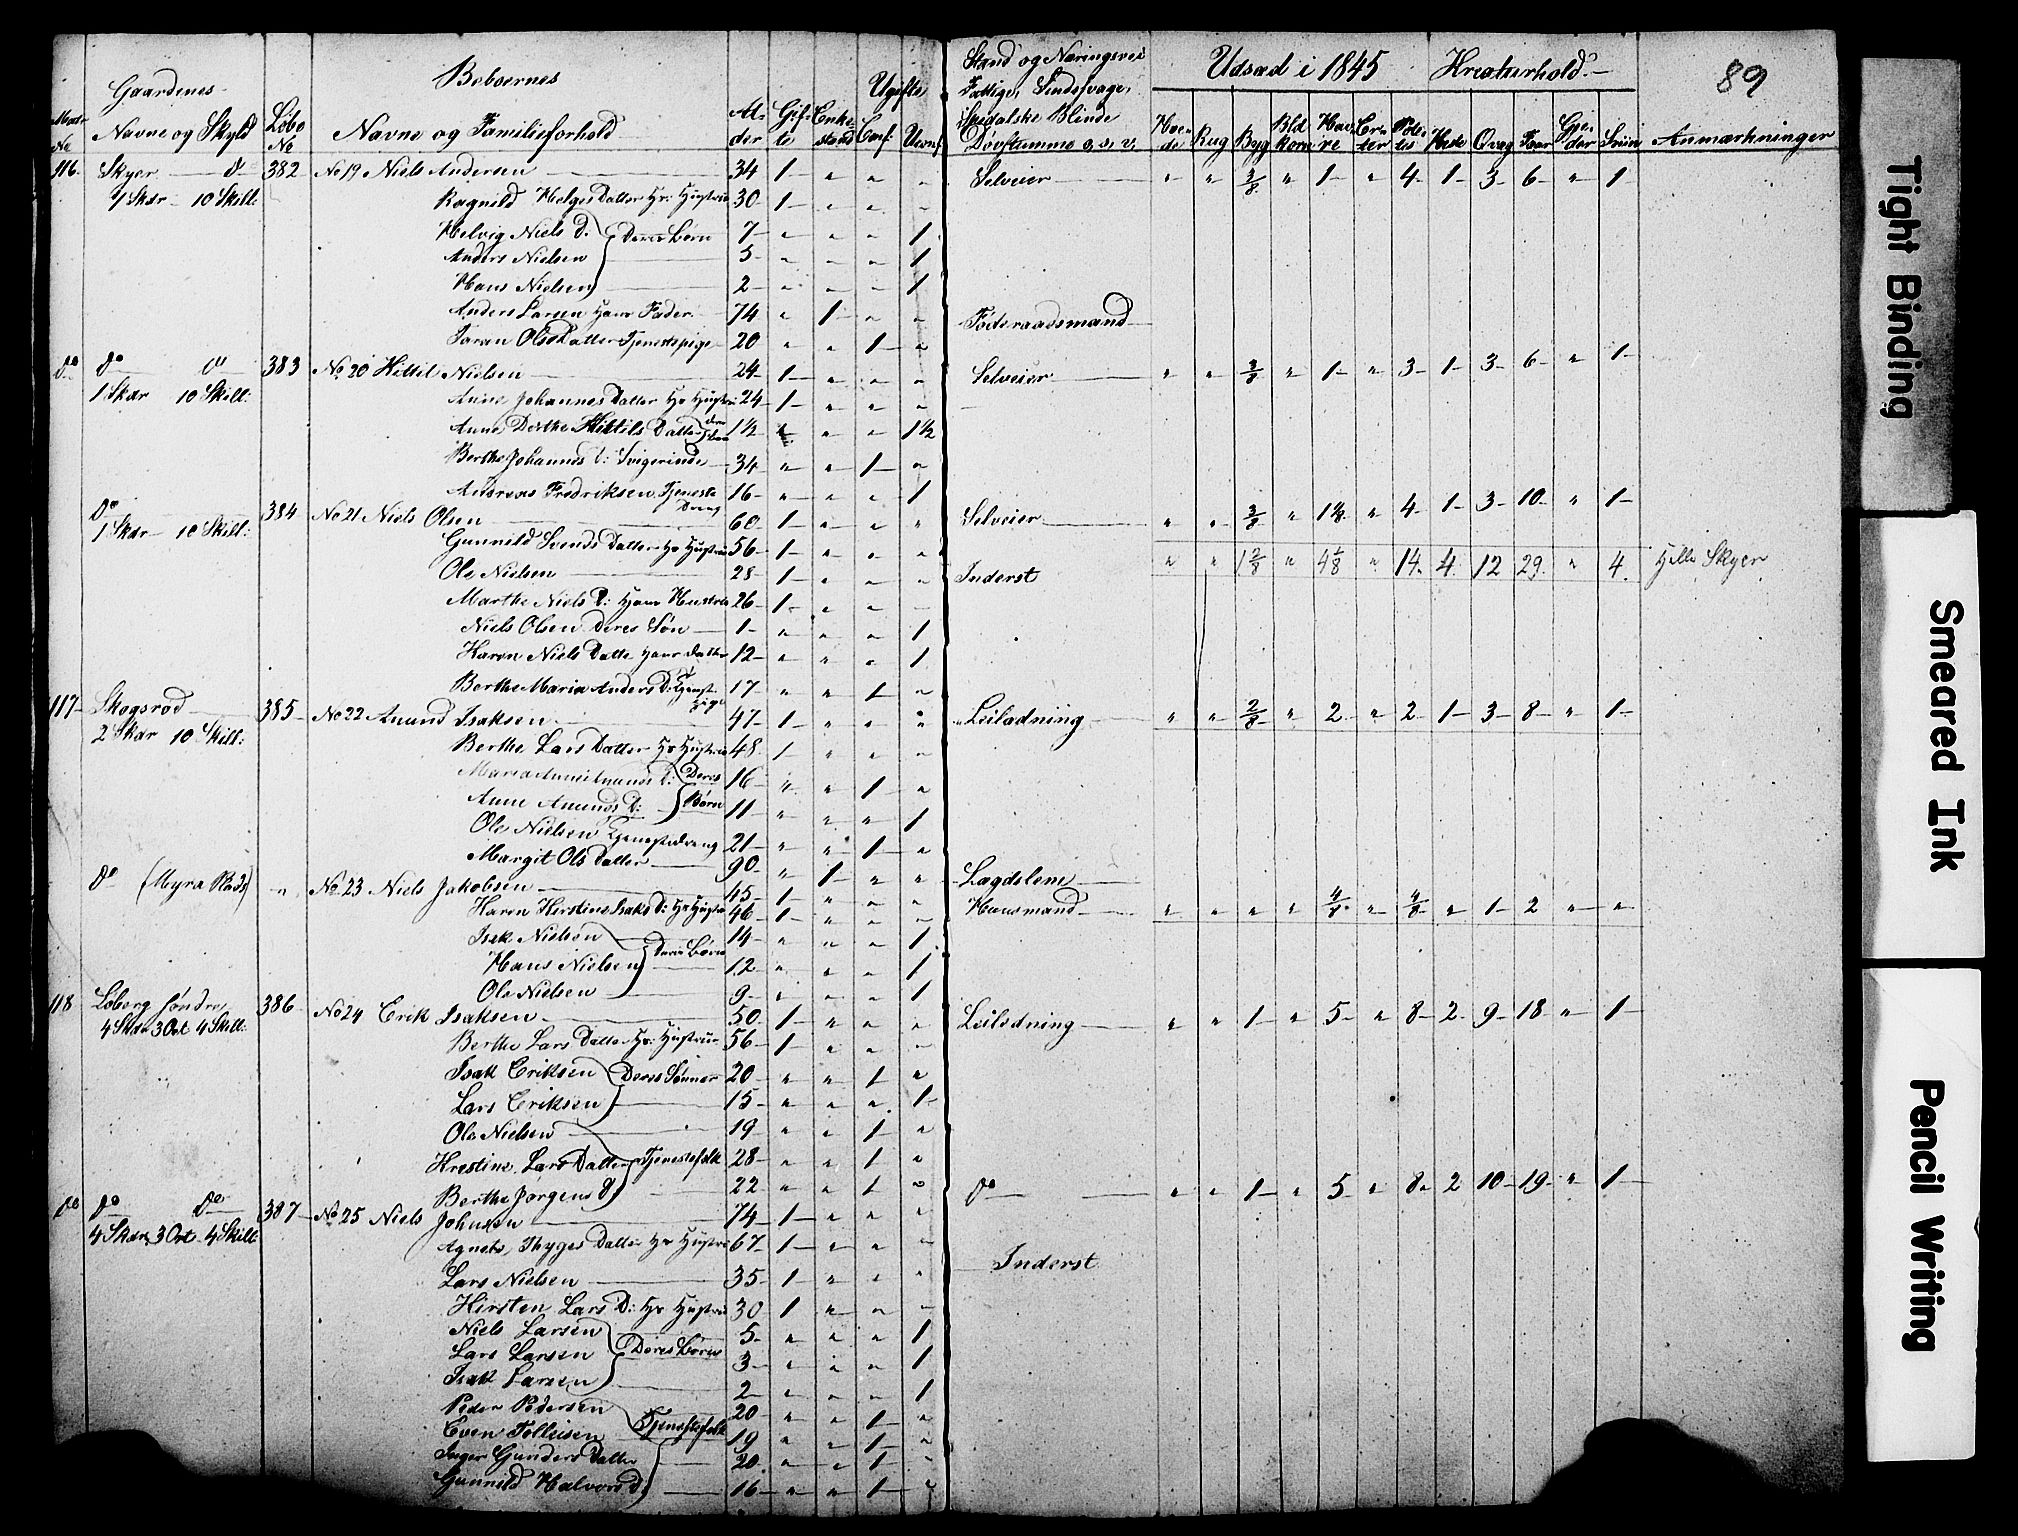 Gaardenes
Beboernes
Ugifte
Stand og Næringsvei
Udsæd i 1845
Kreaturhold
89
Matr No
Navne og Skyld
Løbe No
Navne og Familieforhold
Alder
Gifte
Enkestand
Conf.
Uconf.
Fattige, Sindssvage,
Spedalske Blinde
Døvstumme o, s, v,
Hvede
Rug
Byg
Bld korn
Havre
Erter
Potetes
Heste
Qvæg
Faar
Gjeder
Sviin
Anmærkninger
116. Skyer do 382 No 19 Niels Andersen 34 1 " " " Selveier " " 3/8 " 1 " 4 1 3 6 " 1
1 Skdr 10 Skill: Ragnild Helges Datter Hs: Hustru 30 1 " " "
Helvig Niels D. Deres Børn 7 " " " 1
Anders Nielsen 5 " " " 1
Hans Nielsen 2 " " " 1
Anders Larsen Hans Fader 74 " 1 " " Føderaadsmand
Taran Ols Datter Tjenestepige 20 " " 1 "
do do do 383 No 20 Kittil Nielsen 24 1 " " " Selveier " " 3/8 " 1 " 3 1 3 6 " 1
1 Skdr 10 Skill: Anne Johannes Datter Hs Hustru 24 1 " " "
Anne Dorthe Kittils Datter 1½ " " " 1½
Berthe Johannes D: Svigerinde 34 " " 1 "
Andreas Fredriksen Tjeneste Dreng 16 " " " 1
do 384 No 21 Niels Olsen 60 1 " " " Selveier " " 3/8 " 1 4/8 " 4 1 3 10 " 1
1 Skdr 10 Skill: Gunnild Svends Datter Hs Hustru 56 1 " " "
" " 1 2/8 " 4 4/8 " 14 4 12 29 " 4 Hele Skyer
Ole Nielsen 28 1 " " " Inderst
Marthe Niels D: Hans Hustru 26 1 " " "
Niels Olsen Deres Søn 1 " " " 1
Karen Niels Datte Hans datter 12 " " " 1
Berthe Maria Anders D: Tjeneste pige 17 " " 1 "
117 Skogsrød 385 No 22 Anund Isaksen 47 1 " " " Leilænding " " 2/8 " 2 " 2 1 3 8 " 1
2 Skdr 10 Skill: Berthe Lars Datter Hs Hustru 48 1 " " "
Maria Anunds D: Deres 16 " " 1 "
Anne Anunds D: Børn 11 " " " 1
Ole Nielsen Tjenestedreng 21 " " 1 "
Margit Ols Datter 90 " 1 " " Lægdslem
do (Myra Plads) " No 23 Niels Jakobsen 45 1 " " " Huusmand " " " " 4/8 " 4/8 " 1 2 " "
Karen Kirstine Isaks D: Hs Hustru 46 1 " " "
Isak Nielsen 14 " " " 1
Hans Nielsen Deres Børn 12 " " " 1
Ole Nielsen 9 " " " 1
118 Løberg søndre 386 No 24 Erik Isaksen 50 1 " " " Leilænding " " 1 " 5 " 8 2 9 18 " 1
4 Skdr 3 Ort 4 Skill: Berthe Lars Datter Hs: Hustrue 56 1 " " "
Isak Eriksen Deres Sønner 20 " " 1 "
Lars Eriksen 15 " " " 1
Ole Nielsen 19 " " 1 "
Kirstine Lars Datter Tjenestefolk 28 " " 1 "
Berthe Jørgens D 22 " " 1 "
do do do 387 No 25 Niels Johnsen 74 1 " " " do " " 1 " 5 " 8 2 10 19 " 1
4 Skdr. 3 Ort 4 Skill: Agnete Thyges Datter Hs Hustru 67 1 " " "
Lars Nielsen 35 1 " " " Inderst
Kirsten Lars D: Hs Hustru 30 1 " " "
Niels Larsen 5 " " " 1
Lars Larsen Deres Børn 3 " " " 1
Isak Larsen 2 " " " 1
Peder Pedersen 20 " " 1 "
Even Tollevsen Tjenestefolk 19 " " 1 "
Inger Gunders Datter 20 " " 1 "
Gunnild Halvors D 16 " " 1 "
Tight Binding
Smeared Ink
Pencil Writing